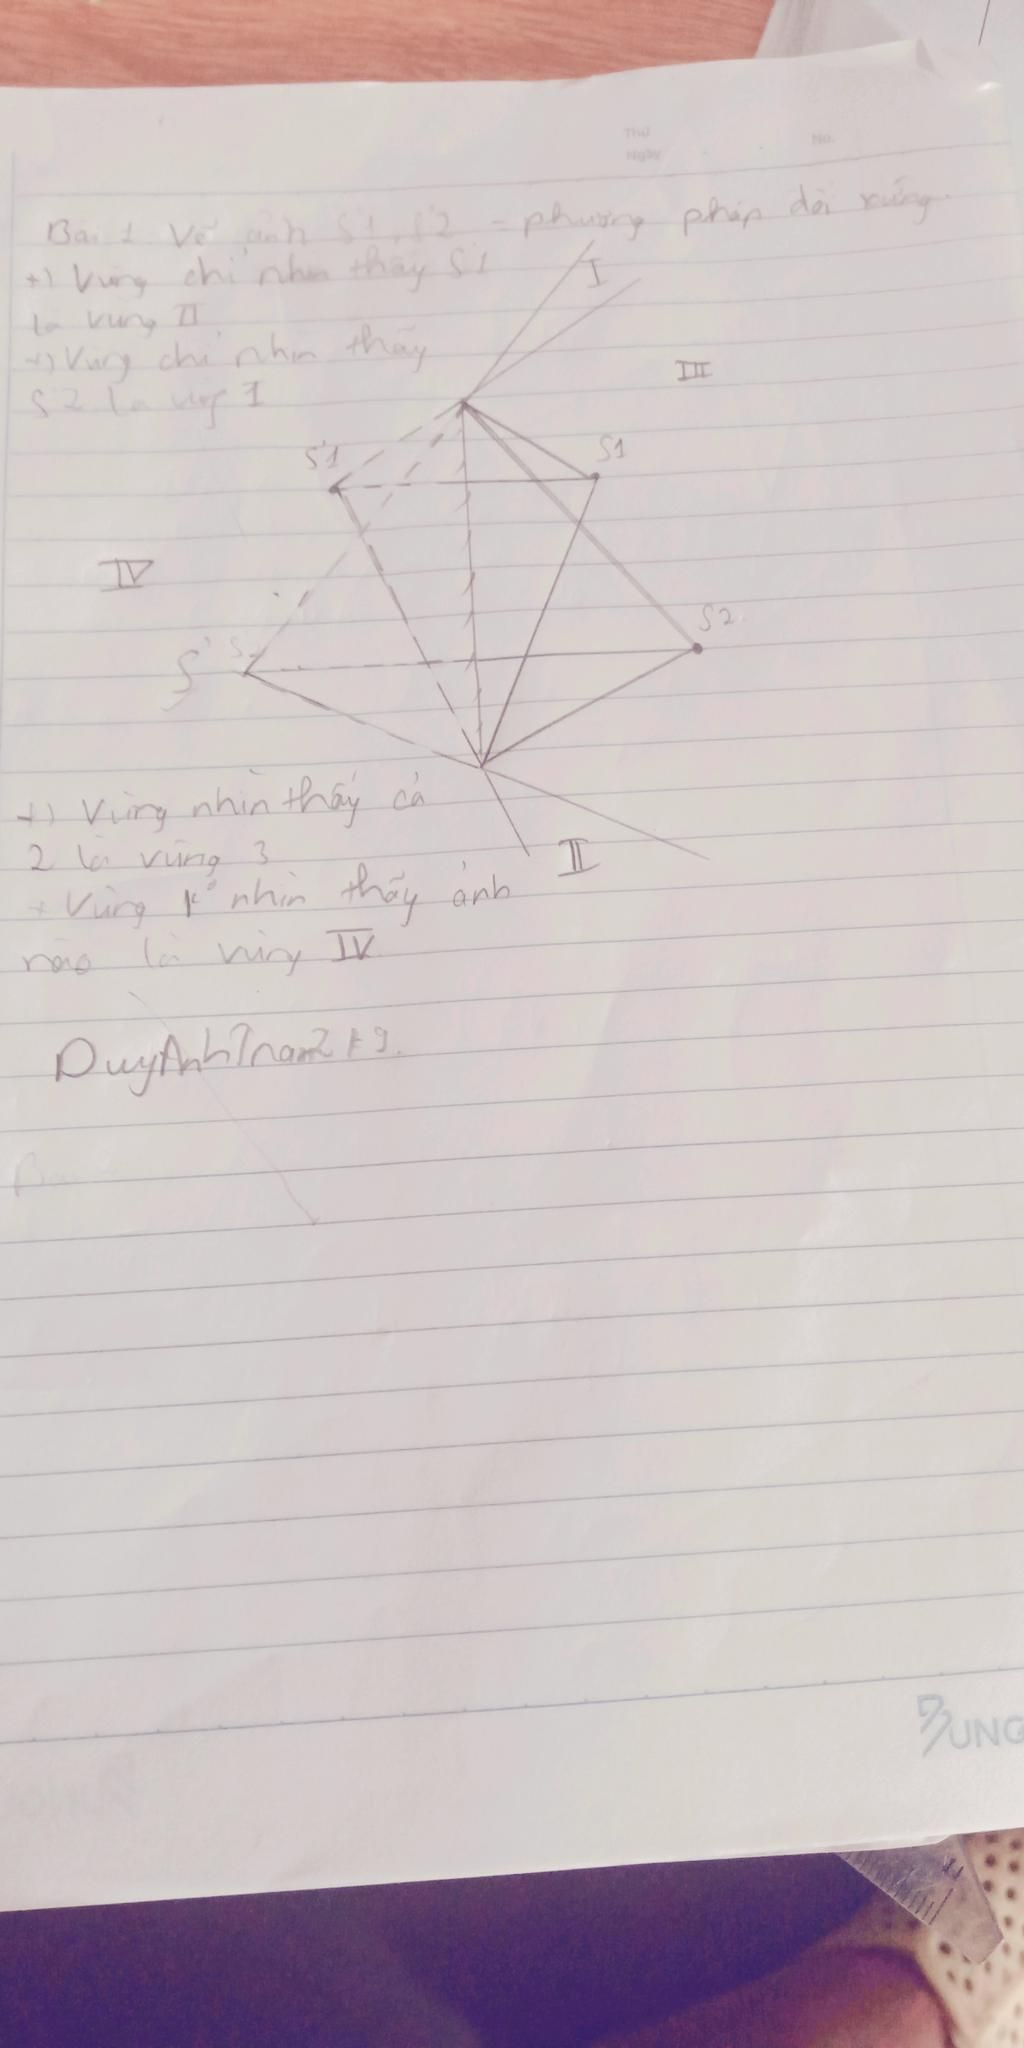 Thứ No.
Ngày
Bài 1 Vẽ ảnh S'1, S'2 = phương pháp đối xứng.
+) Vùng chỉ nhìn thấy S1
là vùng II
+) Vùng chỉ nhìn thấy
S2 là vùng I
I
III
S'1
S1
IV
S2
S'
+) Vùng nhìn thấy cả
2 là vùng 3
II
+ Vùng k° nhìn thấy ảnh
nào là vùng IV